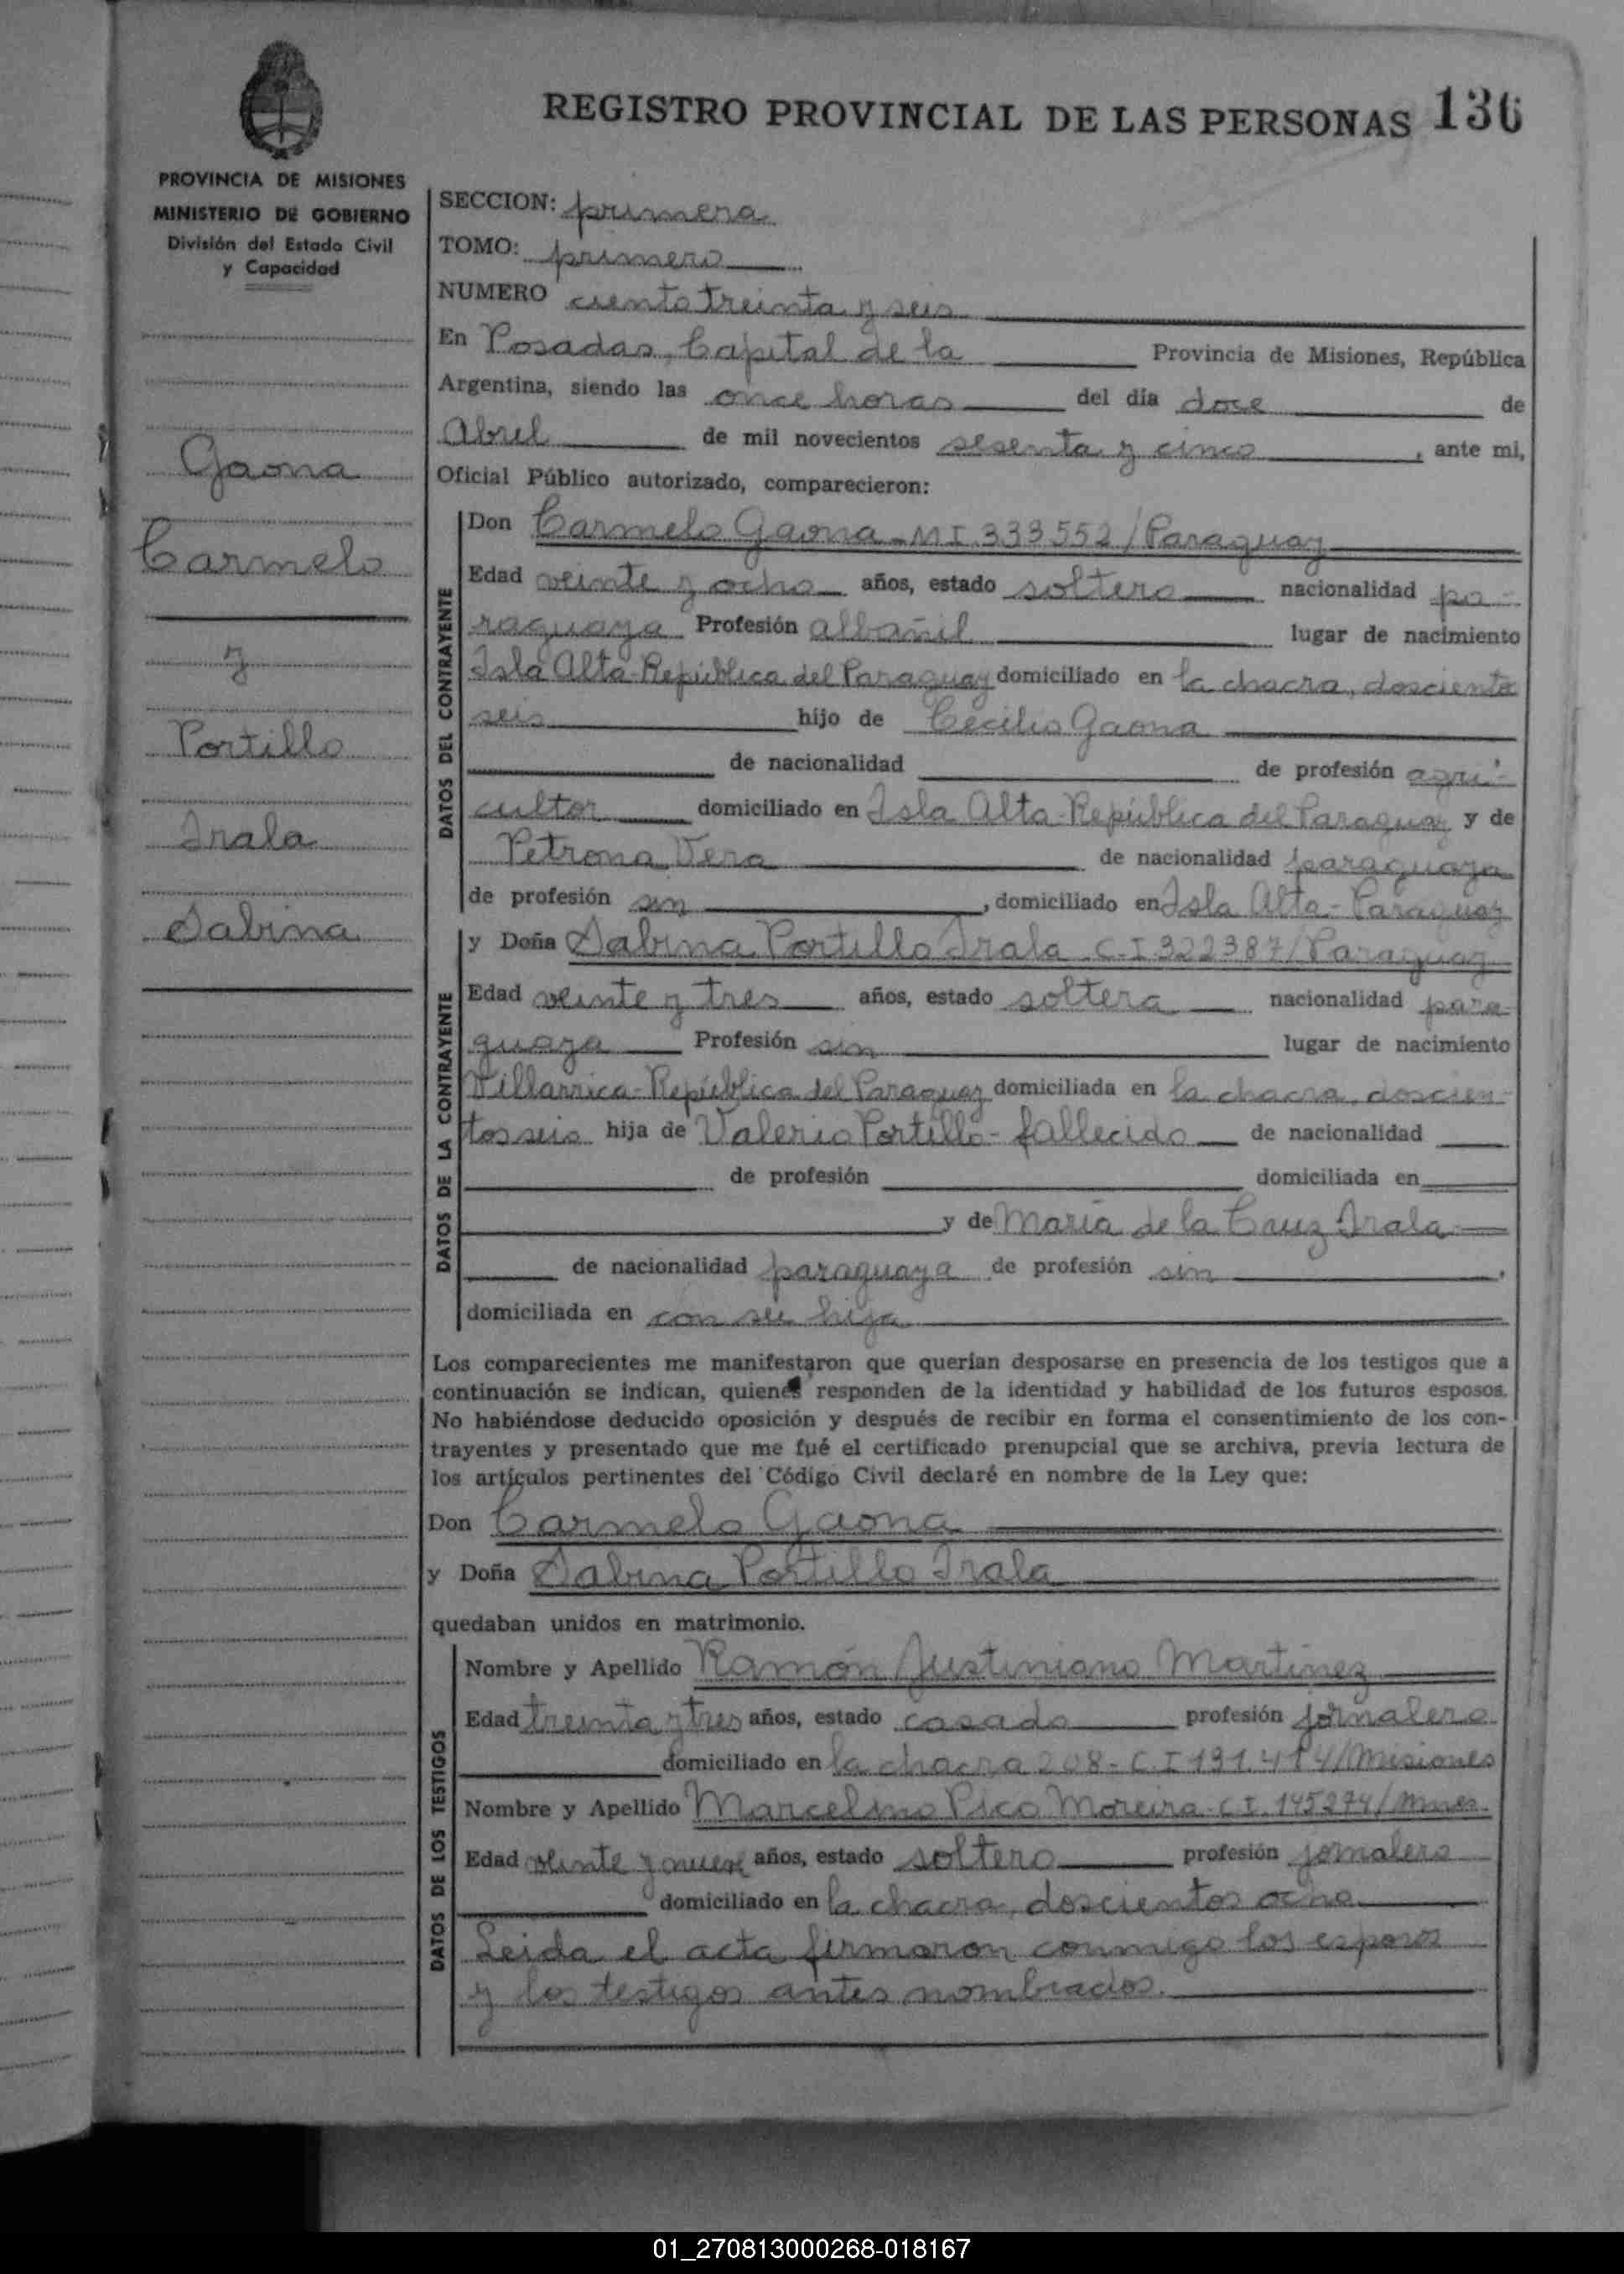 REGISTRO PROVINCIAL DE LAS PERSONAS 136
PROVINCIA DE MISIONES
MINISTERIO DE GOBIERNO
División del Estado Civil
y Capacidad
Gaona
Carmelo
y
Portillo
Irala
Sabina
SECCION: primera
TOMO: primero
NUMERO ciento treinta y seis
En Posadas, Capital de la Provincia de Misiones, República
Argentina, siendo las once horas del día doce de
Abril de mil novecientos sesenta y cinco, ante mi,
Oficial Público autorizado, comparecieron:
DATOS DEL CONTRAYENTE
Don Carmelo Gaona - MI. 333552/Paraguay
Edad veinte y ocho años, estado soltero nacionalidad pa-
raguaya Profesión albañil lugar de nacimiento
Isla Alta-República del Paraguay domiciliado en la chacra, doscientos
seis hijo de Cecilio Gaona
de nacionalidad de profesión agri-
cultor domiciliado en Isla Alta-República del Paraguay y de
Petrona Vera de nacionalidad paraguaya
de profesión sin, domiciliado en Isla Alta-Paraguay
DATOS DE LA CONTRAYENTE
y Doña Sabina Portillo Irala C.I 322387/Paraguay
Edad veinte y tres años, estado soltera nacionalidad para-
guaya Profesión sin lugar de nacimiento
Villarrica-República del Paraguay domiciliada en la chacra, doscien-
tos seis hija de Valerio Portillo-fallecido de nacionalidad
de profesión domiciliada en
y de María de la Cruz Irala
de nacionalidad paraguaya de profesión sin,
domiciliada en con su hija
Los comparecientes me manifestaron que querían desposarse en presencia de los testigos que a
continuación se indican, quienes responden de la identidad y habilidad de los futuros esposos.
No habiéndose deducido oposición y después de recibir en forma el consentimiento de los con-
trayentes y presentado que me fué el certificado prenupcial que se archiva, previa lectura de
los artículos pertinentes del Código Civil declaré en nombre de la Ley que:
Don Carmelo Gaona
y Doña Sabina Portillo Irala
quedaban unidos en matrimonio.
DATOS DE LOS TESTIGOS
Nombre y Apellido Ramón Justiniano Martinez
Edad treinta y tres años, estado casado profesión jornalero
domiciliado en la chacra 208-C.I 191.414/Misiones
Nombre y Apellido Marcelino Pico Moreira-C.I. 145274/Mnes.
Edad veinte y nueve años, estado soltero profesión jornalero
domiciliado en la chacra, doscientos ocho
Leida el acta firmaron conmigo los esposos
y los testigos antes nombrados.
01_270813000268-018167